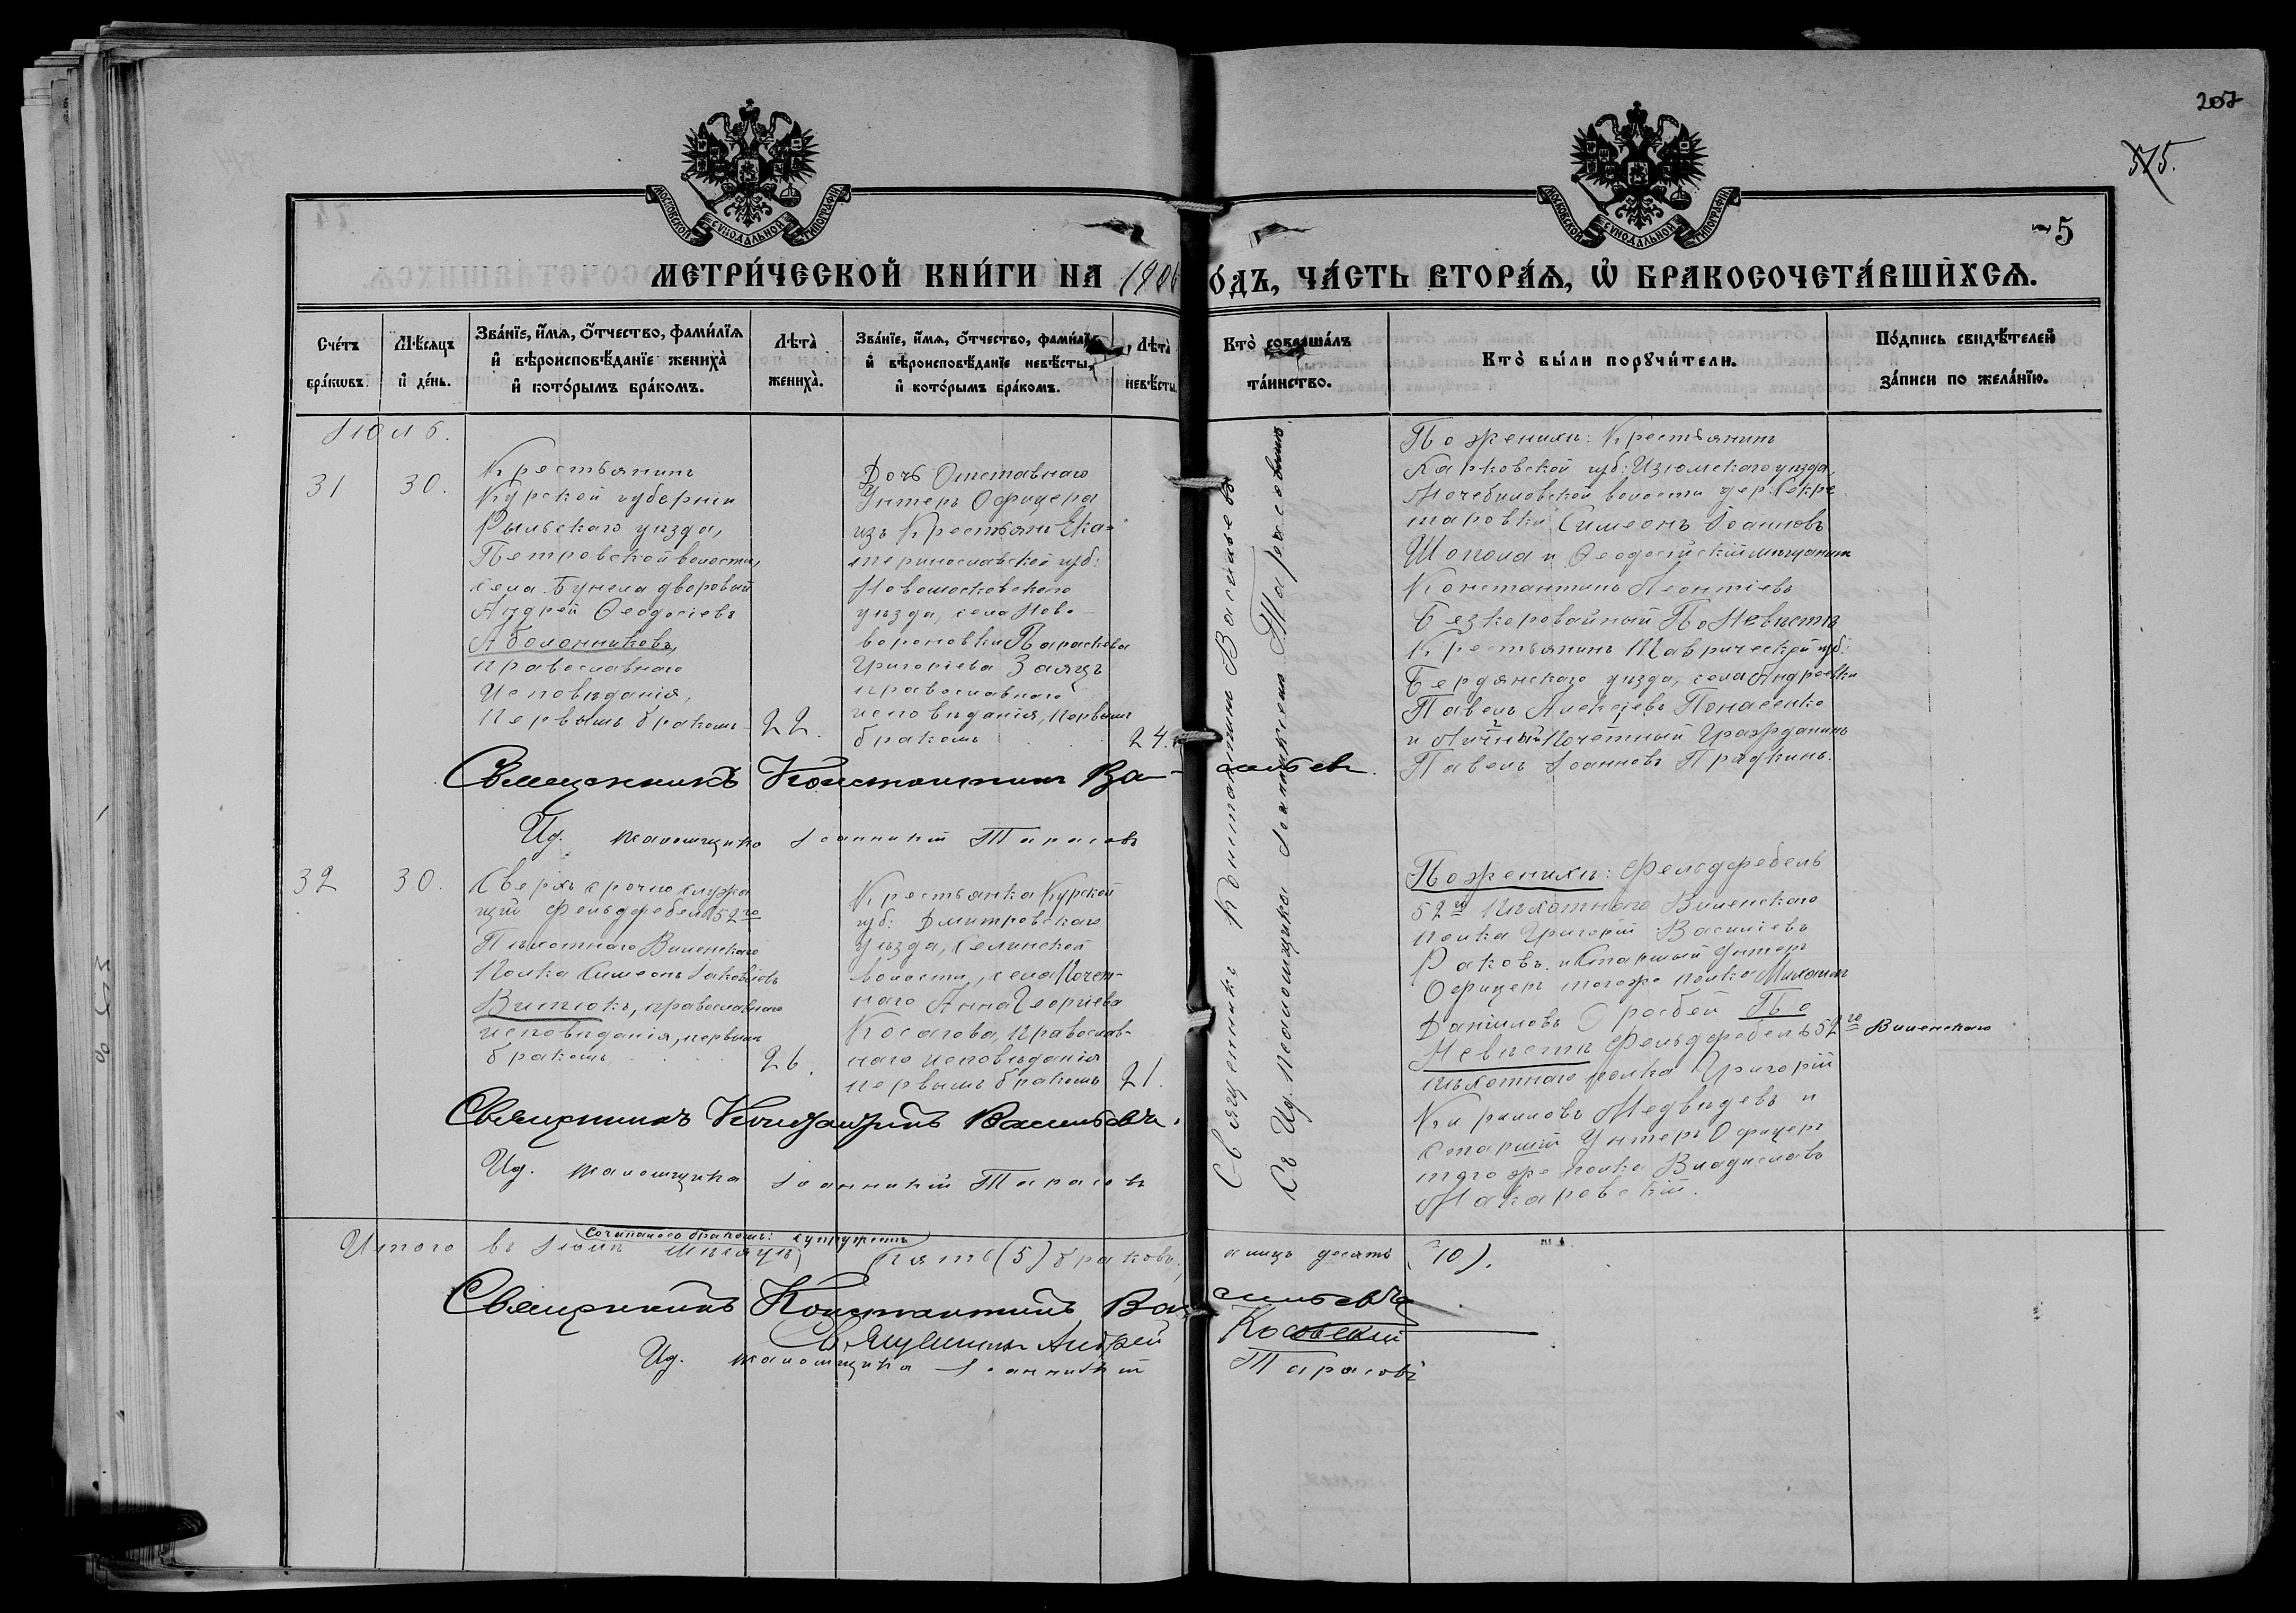 207
575.
75
МОСКОВСКОЙ СѴНОДАЛЬНОЙ ТИПОГРАФІИ
МОСКОВСКОЙ СѴНОДАЛЬНОЙ ТИПОГРАФІИ
МЕТРИ́ЧЕСКОЙ КНИ́ГИ НА 1906 ОДЪ, ЧА́СТЬ ВТОРА́Ѧ, Ѽ БРАКОСОЧЕТА́ВШИХСѦ.
Сче́тъ бра́кѡвъ.
Мѣ́сяцъ и҆ де́нь.
Зва́нїе, и҆́мѧ, ѻ҆́тчество, фами́лїѧ
и҆ вѣроисповѣ́данїе жениха̀
и҆ кото́рымъ бра́комъ.
Лѣта̀ жениха̀.
Зва́нїе, и҆́мѧ, ѻ҆́тчество, фами́лїѧ
и҆ вѣроисповѣ́данїе невѣ́сты,
и҆ кото́рымъ бра́комъ.
Лѣта̀ невѣ́сты.
Кто̀ соверша́лъ та́инство.
Кто̀ бы́ли порꙋчи́тели.
По́дпись свидѣ́телей
за́писи по жела́нїю.
Іюль.
31
30.
Крестьянинъ
Курской губерніи
Рыльскаго уѣзда,
Петровской волости,
села Бунела дворовый
Андрей Ѳеодосіевъ
Аболонниковъ,
православнаго
Исповѣданія,
первымъ бракомъ
22.
Дочь Отставнаго
Унтеръ Офицера
изъ Крестьянъ Ека-
теринославской губ:
Новомосковскаго
уѣзда, села Ново-
вороновки Параскева
Григоріева Заяцъ
православнаго
исповѣданія, первымъ
бракомъ
24.
Священникъ Константинъ Васильевъ
Съ Ид. псаломщика Іоанникіемъ Тарасовымъ.
По женихѣ: Крестьянинъ
Харковской губ: Изюмскаго уѣзда,
волости дер: Секре
таровки Симеонъ Іоанновъ
Шопола и Ѳеодосійскій мѣщанинъ
Константинъ Леонтіевъ
Безкоровайный По Невѣстѣ
Крестьянинъ Таврической губ:
Бердянскаго уѣзда, села Андреевки
Павелъ Алексіевъ Понасенко
и Личный Почетный Гражданинъ
Павелъ Іоанновъ Прядкинъ.
Священникъ Константинъ Васильевъ.
Ид. псаломщика Іоанникій Тарасовъ
32
30.
Сверхъ срочно служа
щій Фельдфебель 52го
Пѣхотнаго Виленскаго
Полка Симеонъ Іаковлевъ
Витюкъ, православнаго
исповѣданія, первымъ
бракомъ
26.
Крестьянка Курской
губ: Дмитровскаго
уѣзда, Селинской
волости, села Почеп-
наго Анна Георгіева
Косагова, Православ-
наго исповѣданія
первымъ бракомъ
21.
По женихѣ: Фельдфебель
52го Пѣхотнаго Виленскаго
полка Григорій Василіевъ
Раковъ. и Старшій Унтеръ
Офицеръ тогоже полка Михаилъ
Даніиловъ По
Невѣстѣ Фельдфебель 52го Виленскаго
пѣхотнаго полка Григорій
Кирилловъ Медвѣдевъ и
Старшій Унтеръ Офицеръ
тогоже полка Владиславъ
Макаровскій.
Священникъ Константинъ Васильевъ.
Ид. псаломщика Іоанникій Тарасовъ
сочитаного бракомъ: супружествъ
Итого въ Іюлѣ Мѣсяцѣ пять (5) браковъ, а лицъ десять (10).
Священникъ Константинъ Васильевъ
Священникъ Андрей Косовский
Ид. псаломщика Іоанникій Тарасовъ